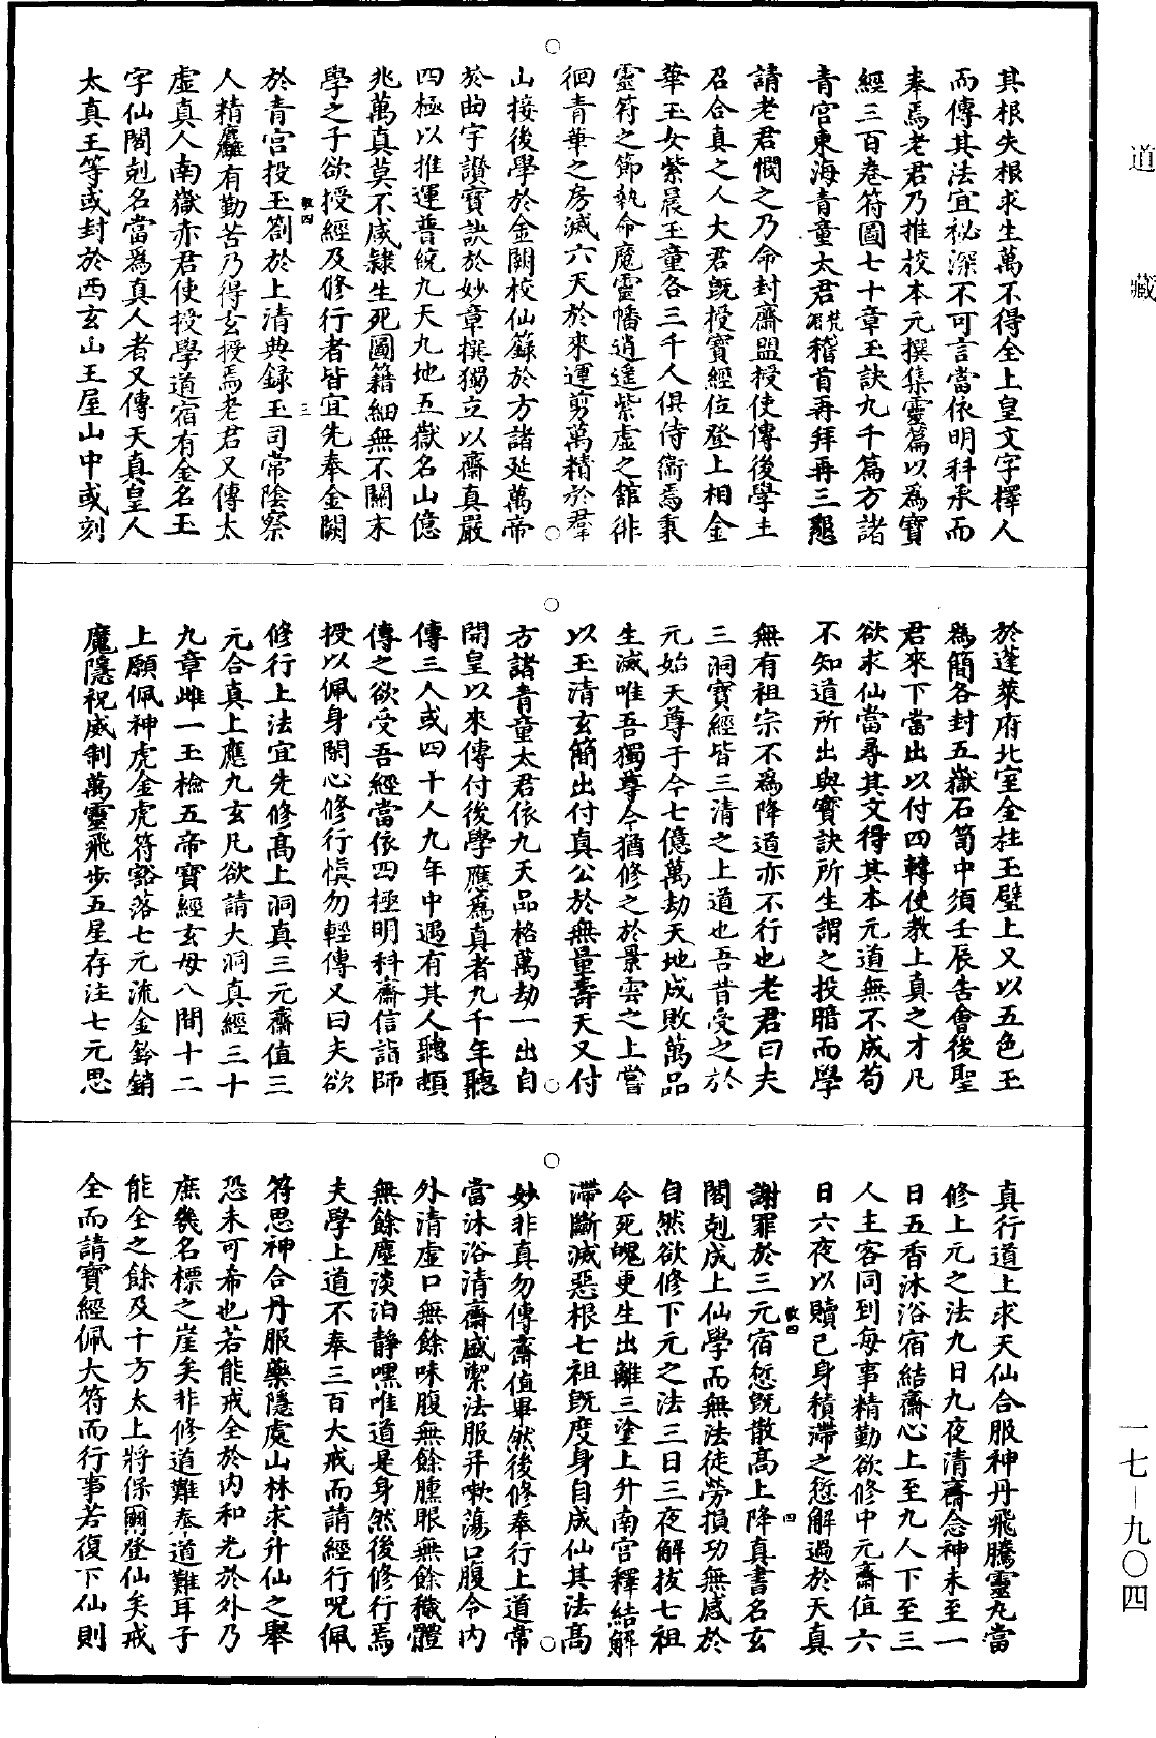 道藏
其根失根求生萬不得全上皇文字擇人
而傳其法宜祕深不可言當依明科承而
奉焉老君乃推校本元撰集靈篇以為寶
經三百卷符圖七十章玉訣九千篇方諸
青宮東海青童太君稽首再拜再三懇
請老君憫之乃命封齋盟授使傳後學士
召合真之人大君既授寶經位登上相金
華玉女紫晨玉童各三千人俱侍衛焉秉
靈符之節執命魔靈幡逍遙紫虛之館徘
徊青華之房滅六天於來運剪萬精於群
山接後學於金闕校仙籙於方諸延萬帝
於曲宇讚寶訣於妙章撰獨立以齋真嚴
四極以推運普統九天九地五嶽名山億
兆萬真莫不咸隸生死圖籍細無不關末
學之子欲授經及修行者皆宜先奉金闕
於青宮投玉劄於上清典錄玉司常陰察
人精麤有勤苦乃得玄授焉老君又傳太
虛真人南嶽赤君使授學道宿有金名玉
字仙閣剋名當為真人者又傳天真皇人
太真王等或封於西玄山王屋山中或刻
於蓬萊府北室金柱玉壁上又以五色玉
為簡各封五嶽石笥中須壬辰吉會後聖
君來下當出以付四轉使教上真之才凡
欲求仙當尋其文得其本元道無不成苟
不知道所出與寶訣所生謂之投暗而學
無有祖宗不為降道亦不行也老君曰夫
三洞寶經皆三清之上道也吾昔受之於
元始天尊于今七億萬劫天地成敗萬品
生滅唯吾獨尊今猶修之於景雲之上嘗
以玉清玄簡出付真公於無量壽天又付
方諸青童太君依九天品格萬劫一出自
開皇以來傳付後學應為真者九千年聽
傳三人或四十人九年中遇有其人聽頓
傳之欲受吾經當依四極明科齋信詣師
授以佩身閑心修行慎勿輕傳又曰夫欲
修行上法宜先修高上洞真三元齋值三
元合真上應九玄凡欲請大洞真經三十
九章雌一玉檢五帝寶經玄母八間十二
上願佩神虎金虎符豁落七元流金鈴銷
魔隱祝威制萬靈飛步五星存注七元思
真行道上求天仙合服神丹飛騰靈丸當
修上元之法九日九夜清齋念神未至一
日五香沐浴宿結齋心上至九人下至三
人主客同到每事精勤欲修中元齋值六
日六夜以贖己身積滯之愆解過於天真
謝罪於三元宿愆既散高上降真書名玄
閣剋成上仙學而無法徒勞損功無感於
自然欲修下元之法三日三夜解拔七祖
令死魄更生出離三塗上升南宮釋結解
滯斷滅惡根七祖既度身自成仙其法高
妙非真勿傳齋值畢然後修奉行上道常
當沐浴清齋盛潔法服并嗽蕩口腹令內
外清虛口無餘味腹無餘臊眼無餘穢體
無餘塵淡泊靜嘿唯道是身然後修行焉
夫學上道不奉三百大戒而請經行呪佩
符思神合丹服藥隱處山林求升仙之舉
恐未可希也若能戒全於內和光於外乃
庶幾名標之崖矣非修道難奉道難耳子
能全之餘及十方太上將保爾登仙矣戒
全而請寶經佩大符而行事若復下仙則
一七－九〇四